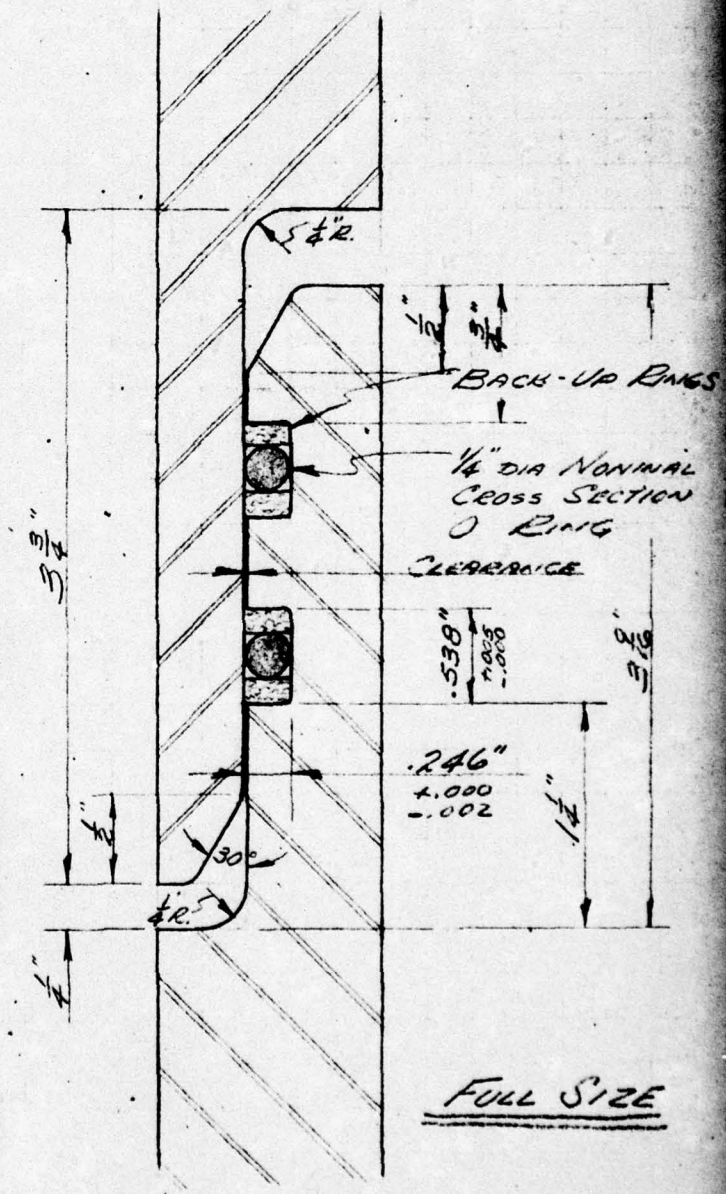 1/4" R.
1/2"
3/4"
BACK-UP RINGS
1/4" DIA NOMINAL
CROSS SECTION
O RING
CLEARANCE
3 3/4"
.538"
+.005
-.000
3 9/16"
.246"
+.000
-.002
1 1/4"
1/2"
30°
1/4" R.
1/4"
FULL SIZE